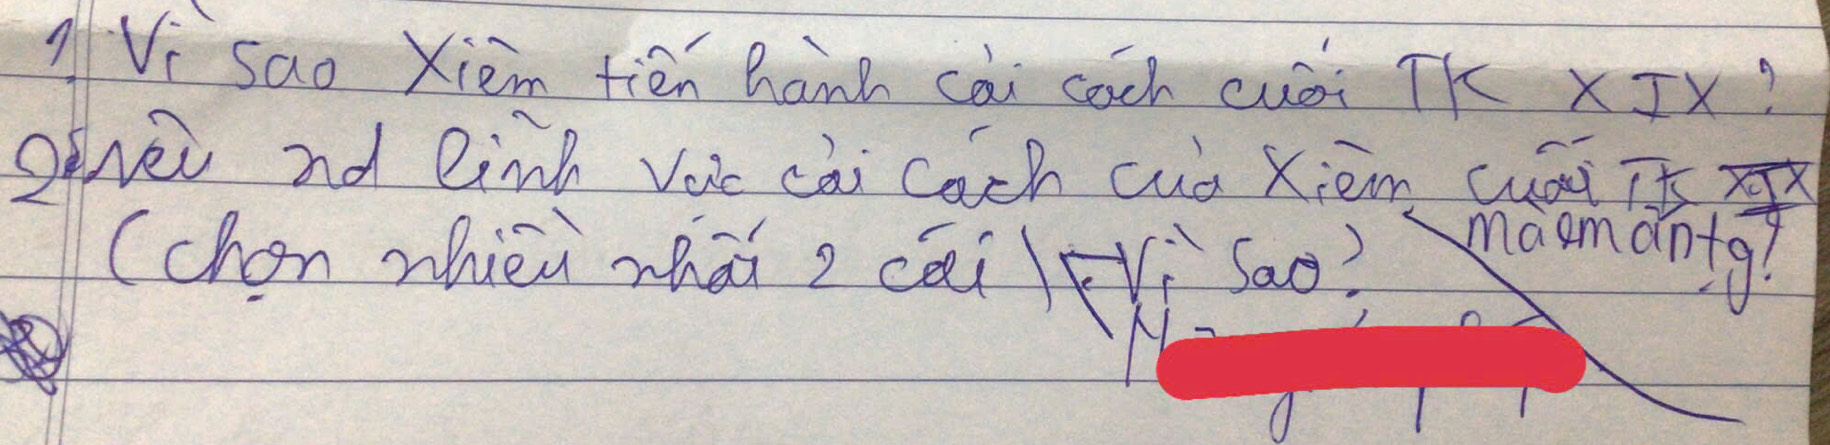 1. Vì sao Xiêm tiến hành cải cách cuối TK XIX?
2. Nêu nd lĩnh vực cải cách của Xiêm cuối TK XIX
mà em ấn tg?
(chọn nhiều nhất 2 cái) Vì sao?